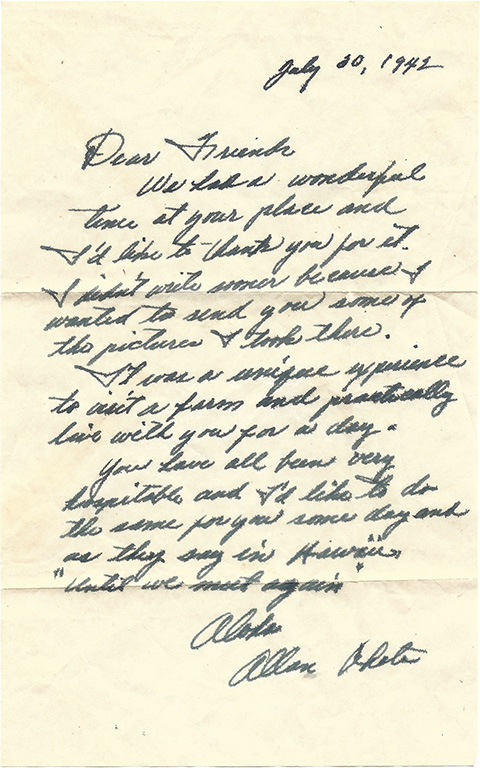 July 20, 1942
Dear Friends
We had a wonderful
time at your place and
I'd like to thank you for it.
I didn't write sooner because I
wanted to send you some of
the pictures I took there.
It was a unique experience
to visit a farm and practically
live with you for a day.
You have all been very
hospitable and I'd like to do
the same for you some day and
as they say in Hawaii,
"Until we meet again"
Aloha
Allan